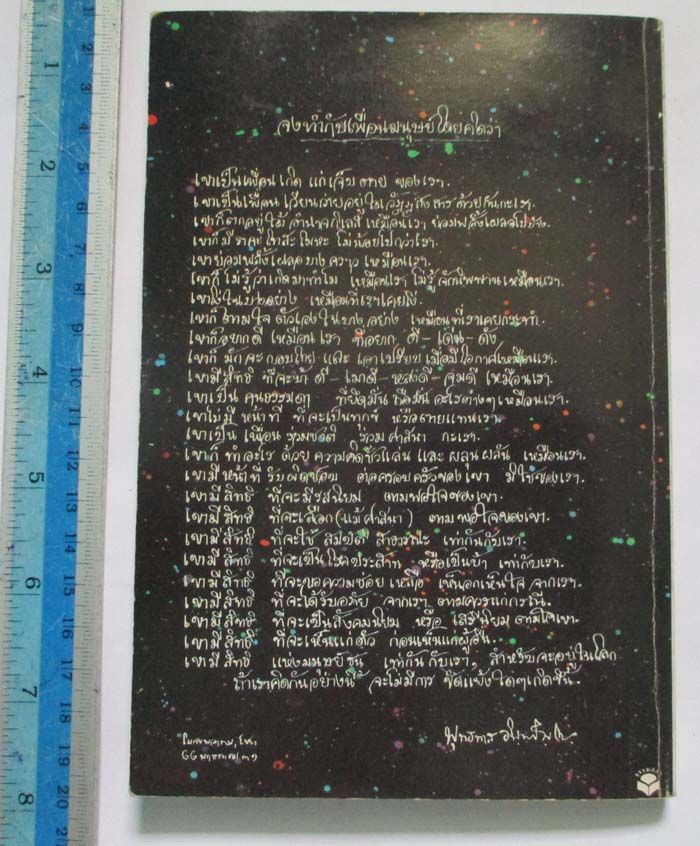 จงทำกับเพื่อนมนุษย์โดยคิดว่า
เขาเป็นเพื่อนเกิด แก่ เจ็บ ตาย ของเรา.
เขาเป็นเพื่อน เวียนว่ายอยู่ในวัฏฏสงสาร ด้วยกันกะเรา.
เขาก็ตกอยู่ใต้ อำนาจกิเลส เหมือนเรา ย่อมพลั้งเผลอไปบ้าง.
เขาก็มี ราคะ โทสะ โมหะ ไม่น้อยไปกว่าเรา.
เขาย่อมพลั้งเผลอบางคราว เหมือนเรา.
เขาก็ไม่รู้ว่าเกิดมาทำไม เหมือนเรา ไม่รู้จักนิพพานเหมือนเรา.
เขาโง่ในบางอย่าง เหมือนที่เราเคยโง่.
เขาก็ตามใจตัวเองในบางอย่าง เหมือนที่เราเคยกระทำ.
เขาก็อยากดี เหมือนเรา ที่อยาก ดี - เด่น - ดัง
เขาก็ มักจะกอบโกย และ เอาเปรียบ เมื่อมีโอกาสเหมือนเรา.
เขามีสิทธิ ที่จะบ้าดี - เมาดี - หลงดี - จมดี เหมือนเรา.
เขาเป็น คนธรรมดา ที่ยึดมั่น ถือมั่น อะไรต่างๆ เหมือนเรา.
เขาไม่มี หน้าที่ ที่จะเป็นทุกข์ หรือตายแทนเรา.
เขาเป็น เพื่อน ร่วมชาติ ร่วมศาสนา กะเรา.
เขาก็ ทำอะไร ด้วยความคิดชั่วแล่น และ ผลุนผลัน เหมือนเรา.
เขามีหน้าที่ รับผิดชอบ ต่อครอบครัวของเขา มิใช่ของเรา.
เขามี สิทธิ ที่จะมีรสนิยม ตามพอใจของเขา.
เขามี สิทธิ ที่จะเลือก (แม้ศาสนา) ตามพอใจของเขา.
เขามี สิทธิ ที่จะใช้ สมบัติ สาธารณะ เท่ากันกับเรา.
เขามี สิทธิ ที่จะเป็นโรคประสาท หรือเป็นบ้า เท่ากับเรา.
เขามี สิทธิ ที่จะขอความช่วยเหลือ เห็นอกเห็นใจ จากเรา.
เขามี สิทธิ ที่จะได้รับอภัย จากเรา ตามควรแก่กรณี.
เขามี สิทธิ ที่จะเป็นสังคมนิยม หรือ เสรีนิยม ตามใจเขา.
เขามี สิทธิ ที่จะเห็นแก่ตัว ก่อนเห็นแก่ผู้อื่น.
เขามี สิทธิ แห่งมนุษยชน เท่ากันกับเรา, สำหรับจะอยู่ในโลก
ถ้าเราคิดกันอย่างนี้ จะไม่มีการ ขัดแย้งใดๆเกิดขึ้น.
พุทธทาส อินทปัญโญ
โมกขพลาราม, ไชยา
1
2
3
4
5
6
7
8
1
2
3
4
5
6
7
8
9
10
11
12
13
14
15
16
17
18
19
20